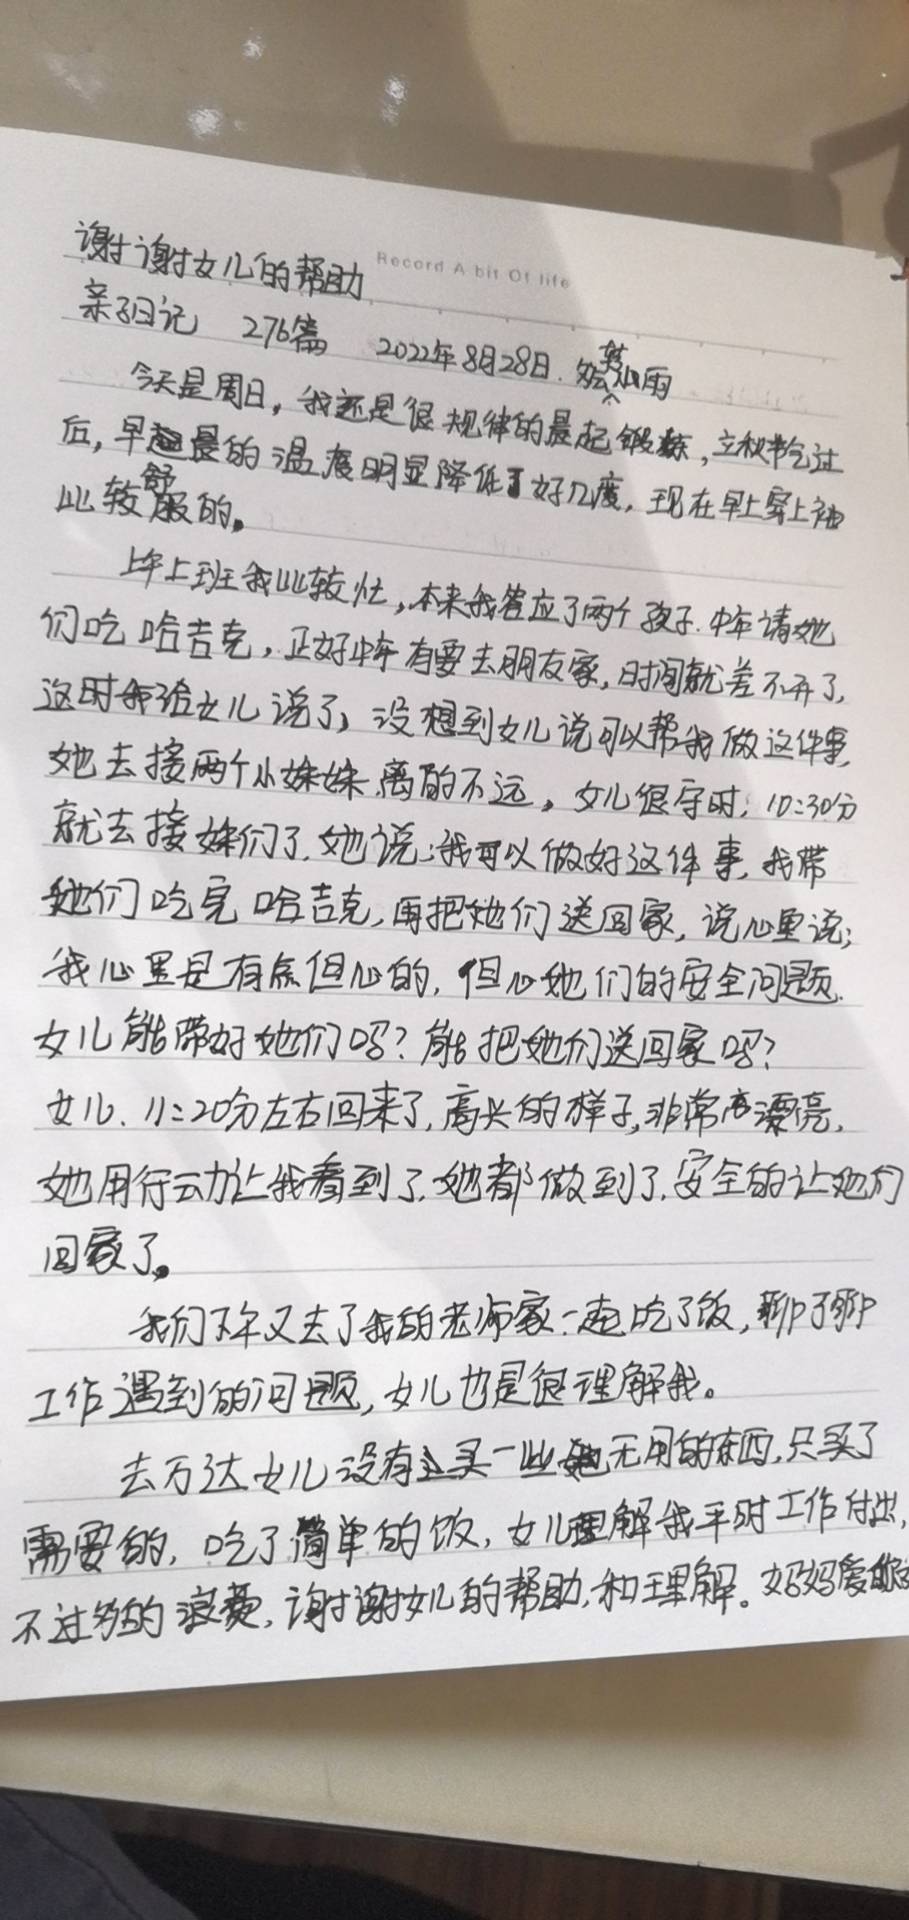 Record A bit Of life
谢谢女儿的帮助
亲子日记 276篇 2022年8月28日. 雨
今天是周日，我还是很规律的晨起锻练，立秋节气过
后，早晨的温度明显降低了好几度，现在早上穿上袖
比较舒服的。
上午上班我比较忙，本来我答应了两个孩子.中午请她
们吃哈吉克，正好中午有要去朋友家，时间就差不开了，
这时我给女儿说了，没想到女儿说可以帮我做这件事，
她去接两个小妹妹，离的不远，女儿很守时；10:30分
就去接妹们了.她说：我可以做好这件事，我带
她们吃完哈吉克，再把她们送回家，说心里说；
我心里是有点但心的，但心她们的安全问题.
女儿能带好她们吗？能把她们送回家吗？
女儿、11:20分左右回来了，高兴的样子，非常漂亮，
她用行动让我看到了.她都做到了.安全的让她们
回家了。
我们下午又去了我的老师家一起吃了饭，聊了聊
工作遇到的问题，女儿也是很理解我。
去万达女儿没有买一些无用的东西，只买了
需要的，吃了简单的饭，女儿理解我平时工作付出，
不过多的浪费，谢谢女儿的帮助，和理解。妈妈爱